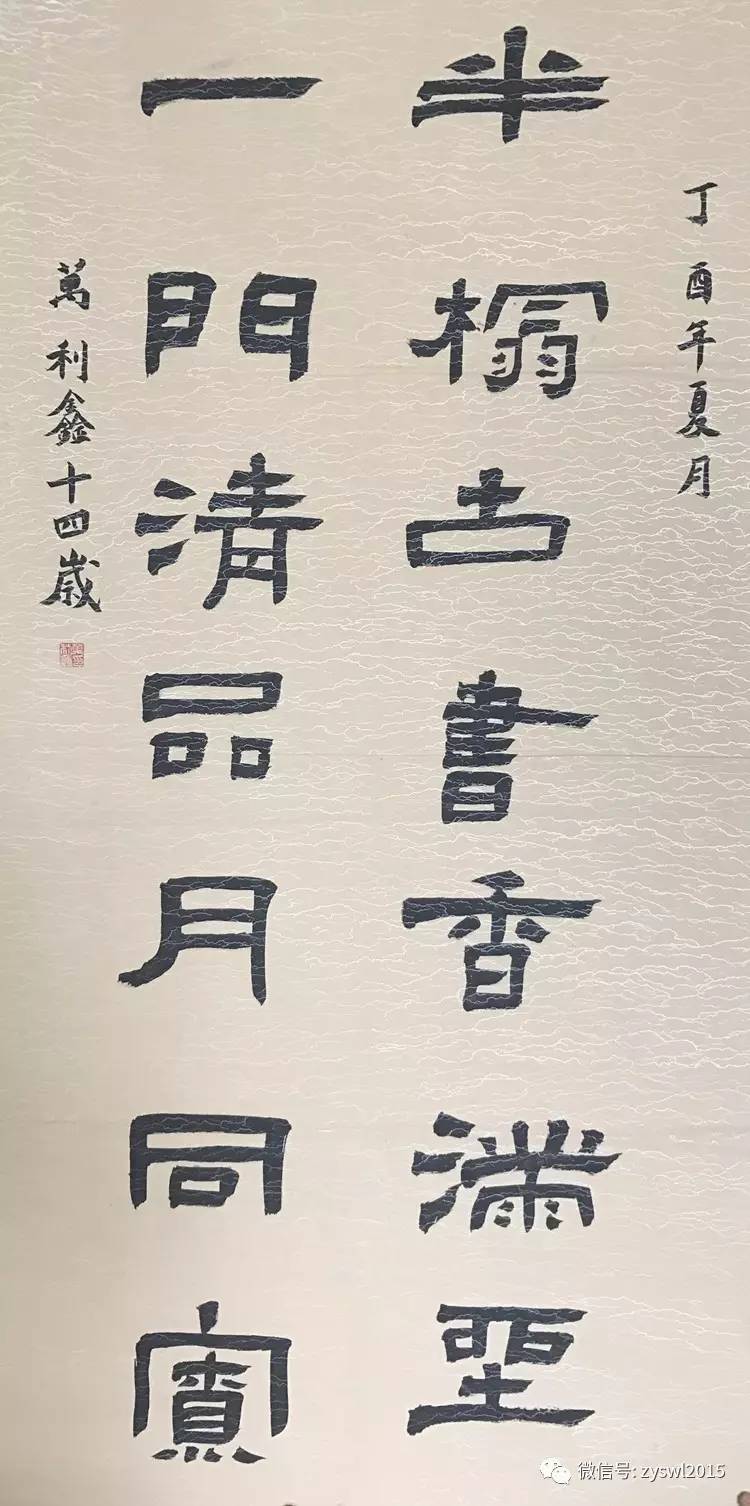 丁酉年夏月
半榻古書香滿
一門清品月同
萬利鑫十四歲
微信号: zyswl2015